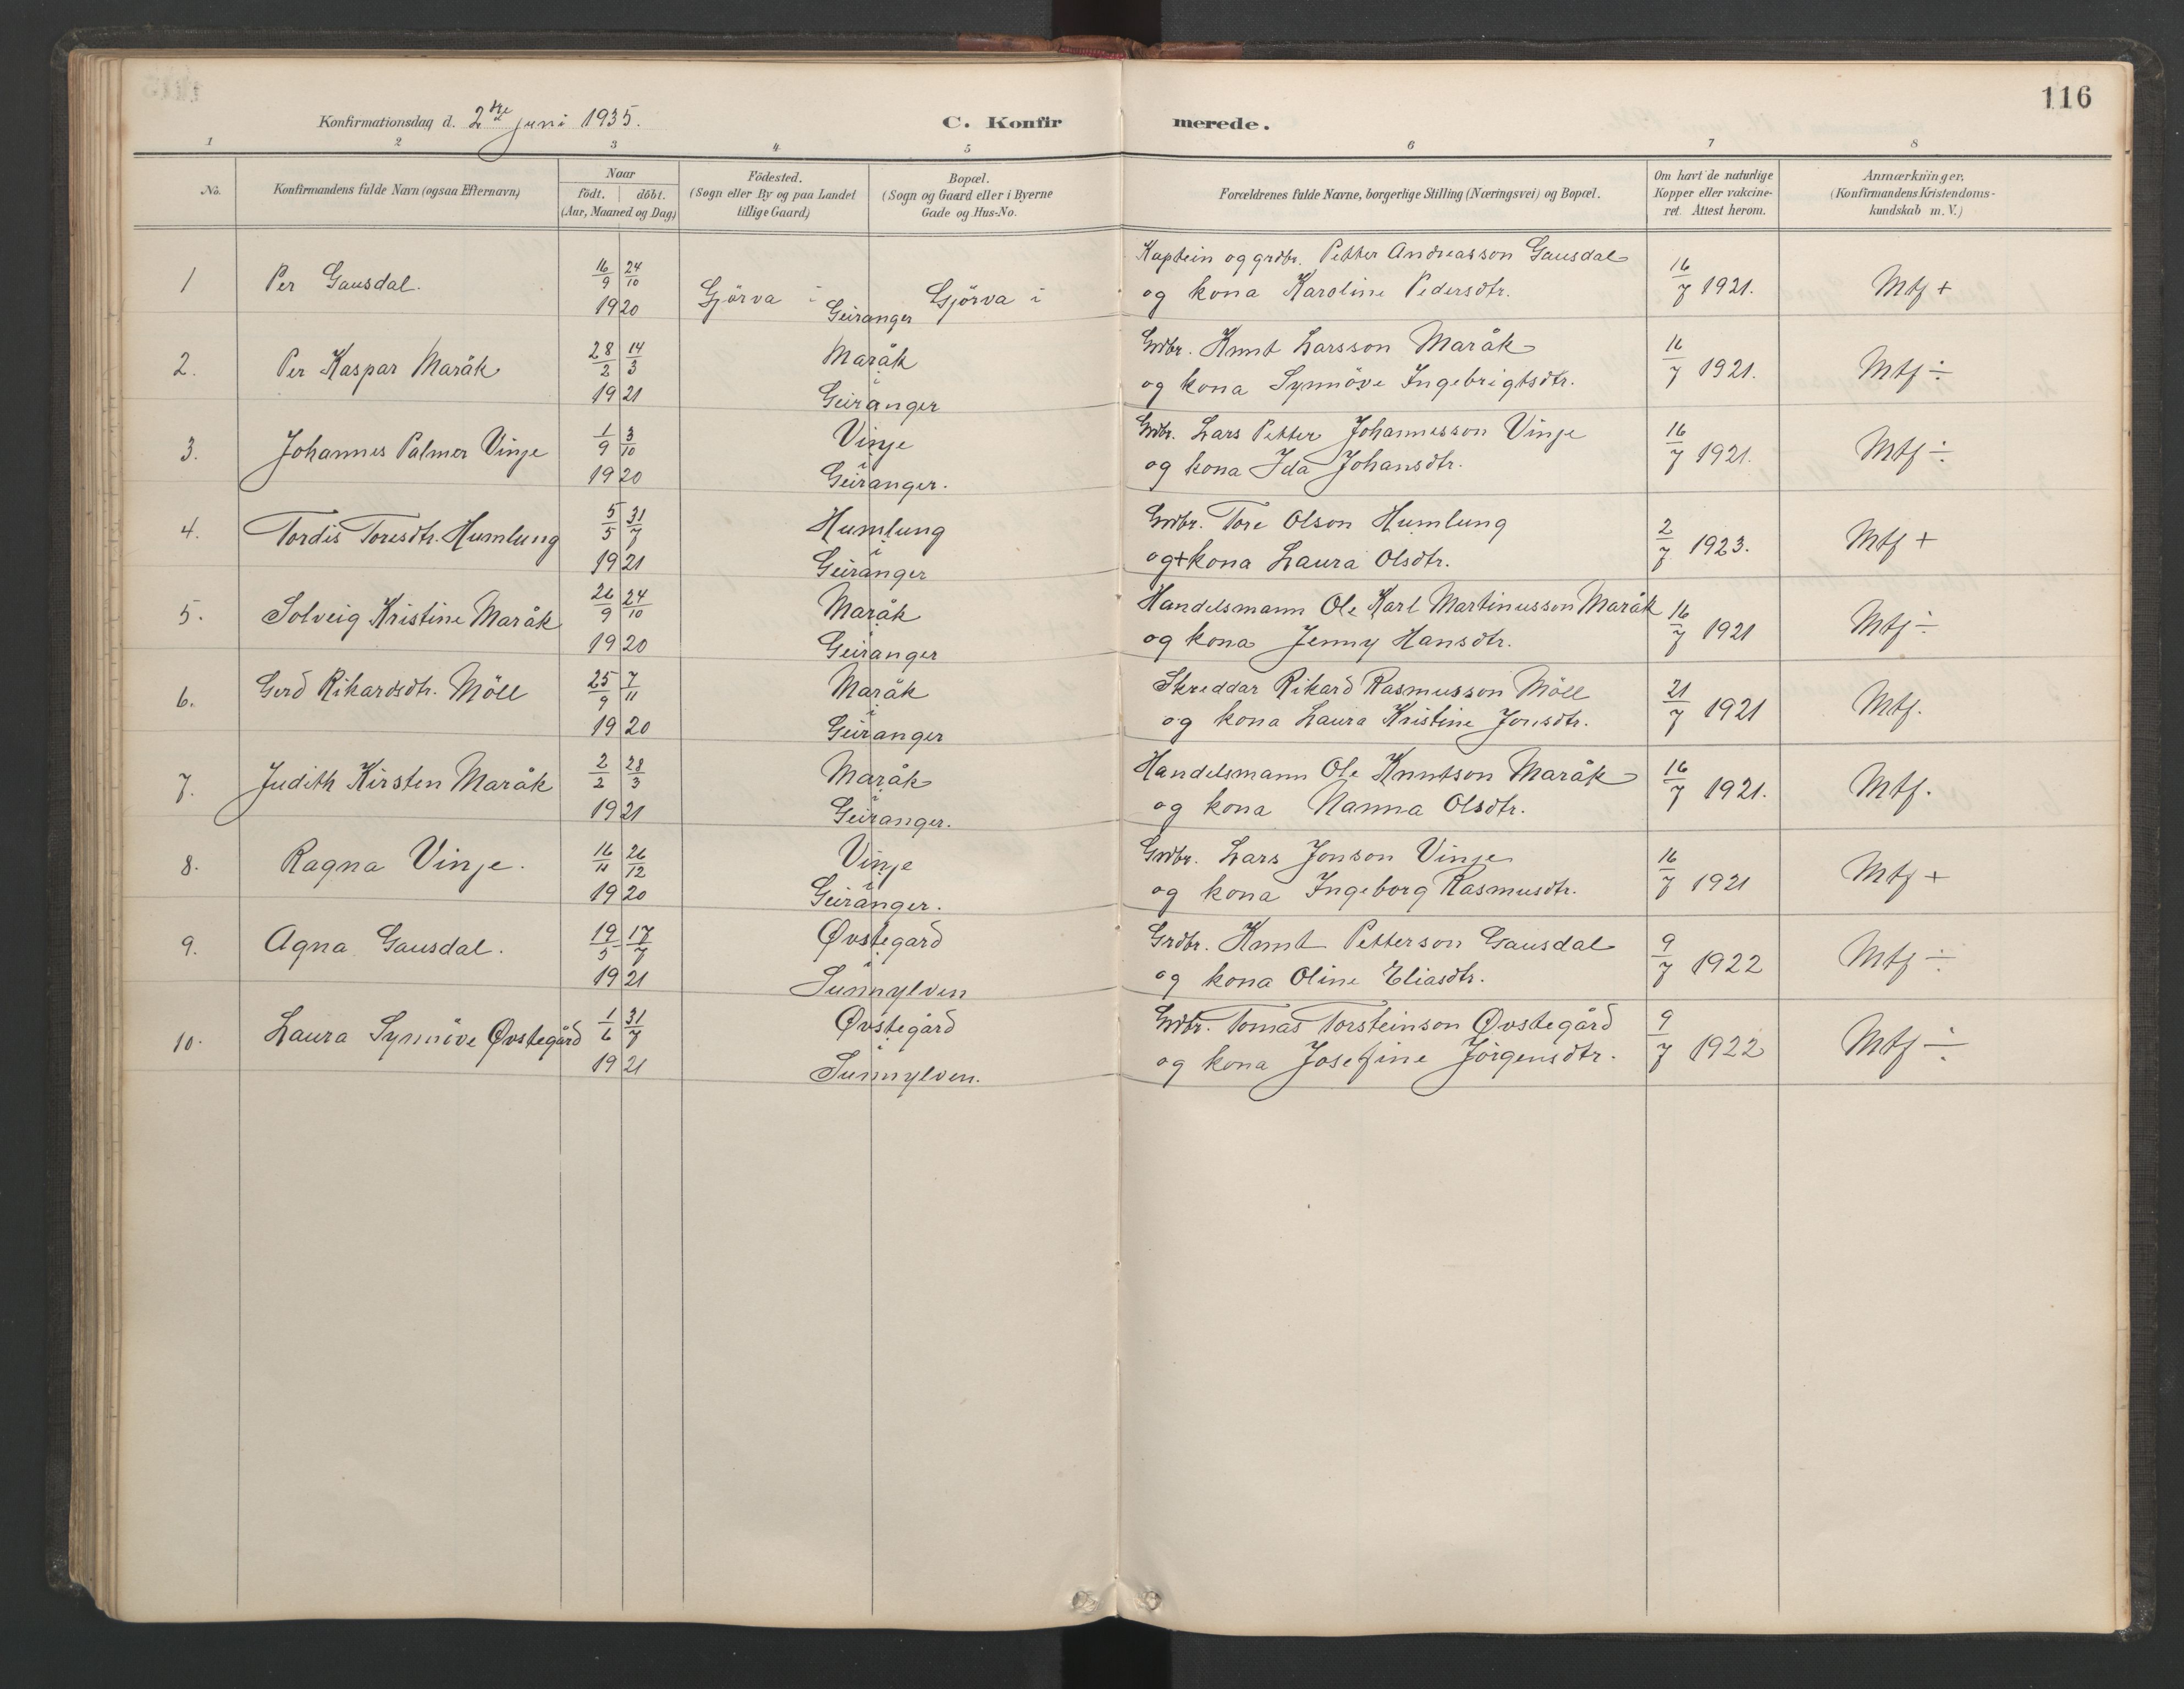 116
Konfirmationsdag d. 2dre juni 1935.
C. Konfirmerede.
1 2 3 4 5 6 7 8
No.
Konfirmandens fulde Navn (ogsaa Efternavn)
Naar
födt. | döbt.
(Aar, Maaned og Dag)
Födested.
(Sogn eller By og paa Landet
tillige Gaard)
Bopæl.
(Sogn og Gaard eller i Byerne
Gade og Hus-No.
Forældrenes fulde Navne, borgerlige Stilling (Næringsvei) og Bopæl.
Om havt de naturlige
Kopper eller vakcine-
ret. Attest herom.
Anmærkninger.
(Konfirmandens Kristendoms-
kundskab m. V.)
1 Per Gausdal. 16/9 24/10 1920 Gjörva i Geiranger Gjörva i
Kaptein og grdbr. Petter Andreasson Gausdal
og kona Karoline Pedersdtr. 16/7 1921. Mtf +
2. Per Kaspar Maråk 28/2 14/3 1921 Maråk i Geiranger
Grdbr. Knut Larsson Maråk
og kona Synnöve Ingebrigtsdtr. 16/7 1921. Mtf ÷
3. Johannes Palmer Vinje 1/9 3/10 1920 Vinje i Geiranger.
Grdbr. Lars Petter Johannesson Vinje
og kona Ida Johansdtr. 16/7 1921. Mtf ÷
4. Tordis Toresdtr. Humlung 5/5 31/7 1921 Humlung i Geiranger
Grdbr. Tore Olson Humlung
og + kona Laura Olsdtr. 2/7 1923. Mtf +
5. Solveig Kristine Maråk 26/9 24/10 1920 Maråk i Geiranger
Handelsmann Ole Karl Martinusson Maråk
og kona Jenny Hansdtr. 16/7 1921 Mtf ÷
6. Gerd Rikardsdtr. Möll 25/9 7/11 1920 Maråk i Geiranger
Skreddar Rikard Rasmusson Möll
og kona Laura Kristine Jonsdtr. 21/7 1921 Mtf.
7. Judith Kirsten Maråk 2/2 28/3 1921 Maråk i Geiranger.
Handelsmann Ole Knutson Maråk
og kona Nanna Olsdtr. 16/7 1921. Mtf.
8. Ragna Vinje. 16/11 26/12 1920 Vinje i Geiranger.
Grdbr. Lars Jonson Vinje
og kona Ingeborg Rasmusdtr. 16/7 1921 Mtf +
9. Agna Gausdal. 19/5 17/7 1921 Øvstegard i Sunnylven
Grdbr. Knut Petterson Gausdal
og kona Oline Eliasdtr. 9/7 1922 Mtf ÷
10. Laura Synnöve Øvstegård 1/6 31/7 1921 Øvstegård i Sunnylven.
Grdbr. Tomas Torsteinson Øvstegård
og kona Josefine Jörgensdtr. 9/7 1922 Mtf ÷